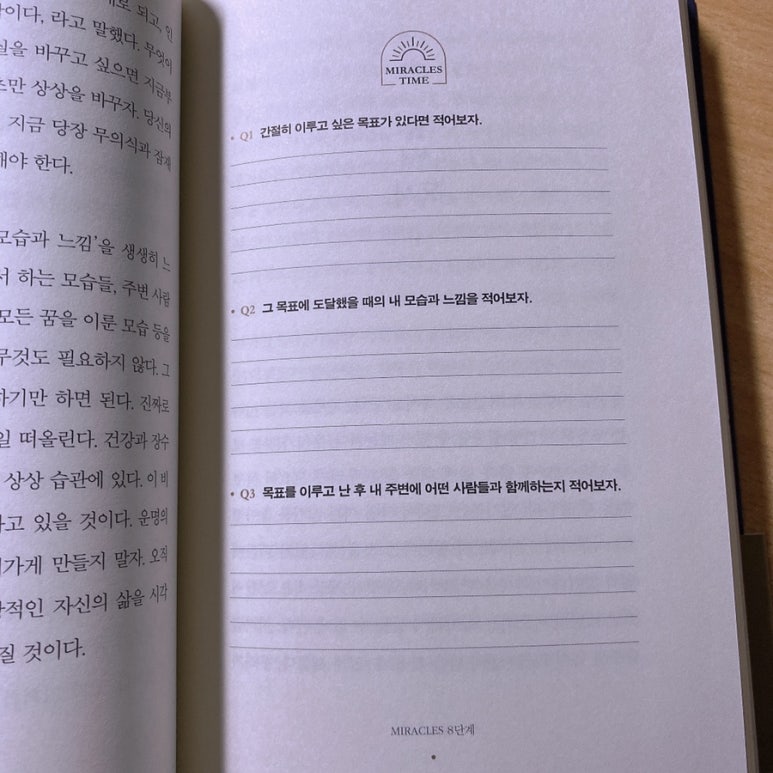 라고 말했다. 무엇이
바꾸고 싶으면 지금부
상상을 바꾸자. 당신의
지금 당장 무의식과 잠재
해야 한다.
모습과 느낌'을 생생히 느
하는 모습들, 주변 사람
모든 꿈을 이룬 모습 등을
필요하지 않다. 그
하기만 하면 된다. 진짜로
떠올린다. 건강과 장수
상상 습관에 있다. 이 비
있을 것이다. 운명의
만들지 말자. 오직
자신의 삶을 시각
것이다.
MIRACLES
TIME
• Q1 간절히 이루고 싶은 목표가 있다면 적어보자.
• Q2 그 목표에 도달했을 때의 내 모습과 느낌을 적어보자.
• Q3 목표를 이루고 난 후 내 주변에 어떤 사람들과 함께하는지 적어보자.
MIRACLES 8단계